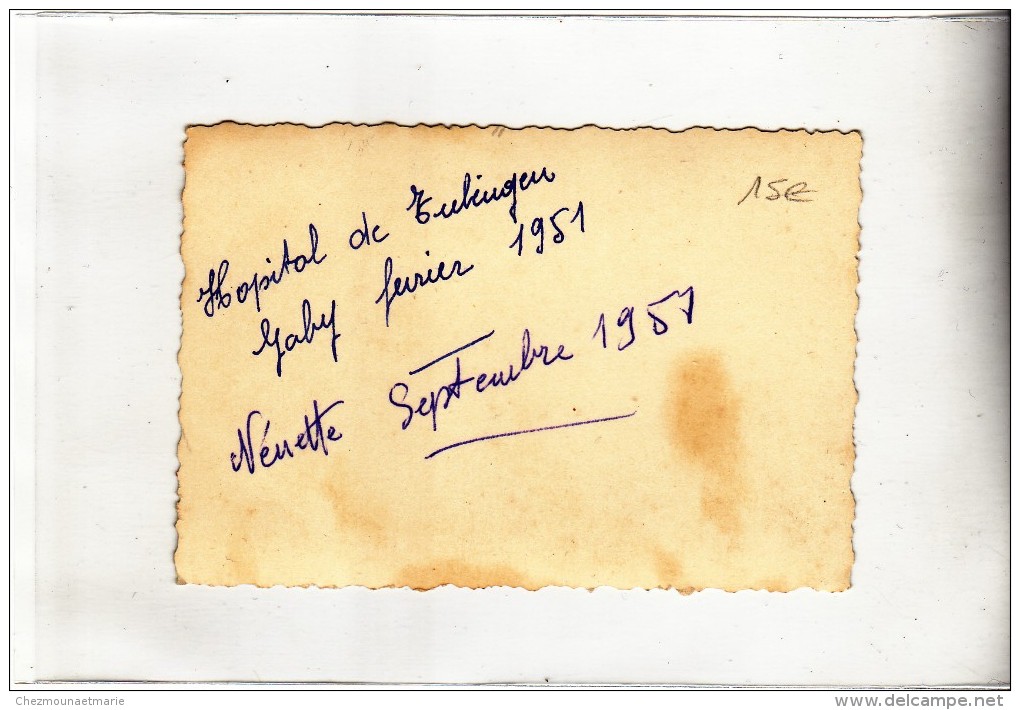 15€
Hopital de Tubingen
Gaby fevrier 1951
Nénette Septembre 1951
Chezmounaetmarie
www.delcampe.net